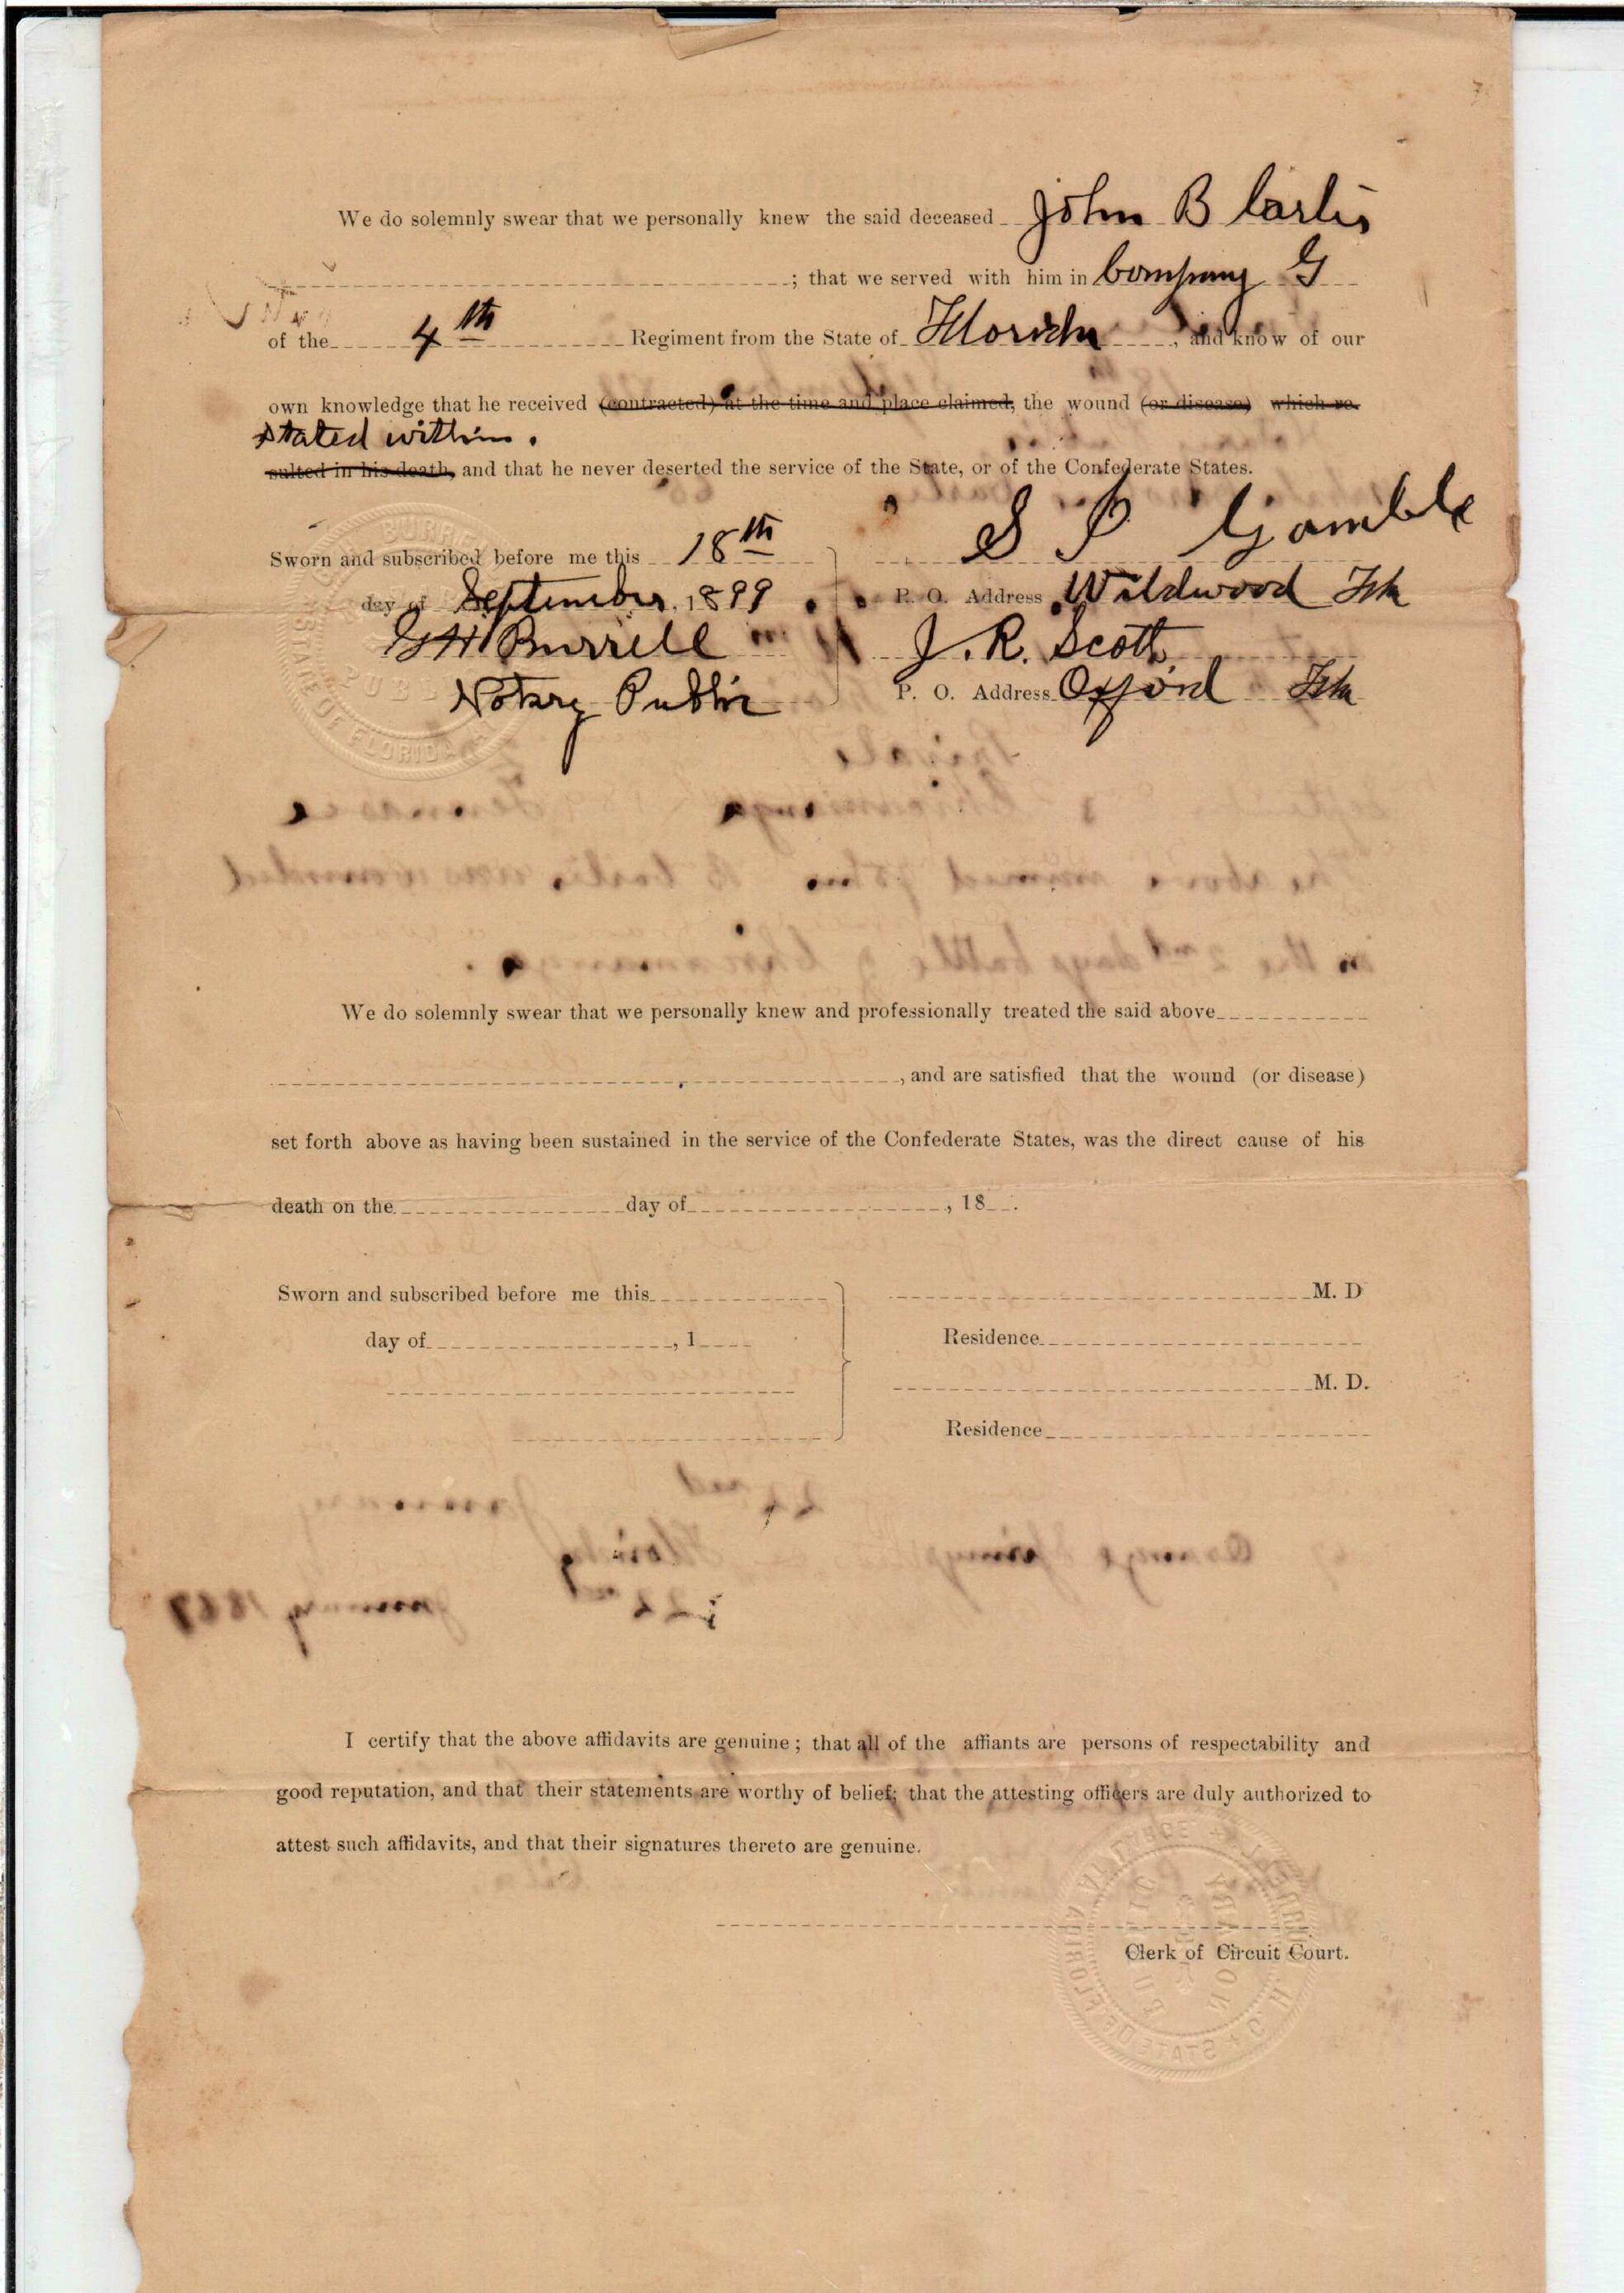 We do solemnly swear that we personally knew the said deceased John B Carlis
; that we served with him in Company G
of the 4th Regiment from the State of Florida, and know of our
own knowledge that he received (contracted) at the time and place claimed, the wound (or disease) which re-
stated within.
sulted in his death, and that he never deserted the service of the State, or of the Confederate States.
Sworn and subscribed before me this 18th
day of September, 1899
G H Burrell
Notary Public
S P Gamble
P. O. Address Wildwood Fla
J. R. Scott
P. O. Address Oxford Fla
STATE OF FLORIDA
We do solemnly swear that we personally knew and professionally treated the said above
, and are satisfied that the wound (or disease)
set forth above as having been sustained in the service of the Confederate States, was the direct cause of his
death on the day of , 18 .
Sworn and subscribed before me this
day of , 1
M. D
Residence
M. D.
Residence
I certify that the above affidavits are genuine; that all of the affiants are persons of respectability and
good reputation, and that their statements are worthy of belief; that the attesting officers are duly authorized to
attest such affidavits, and that their signatures thereto are genuine.
Clerk of Circuit Court.